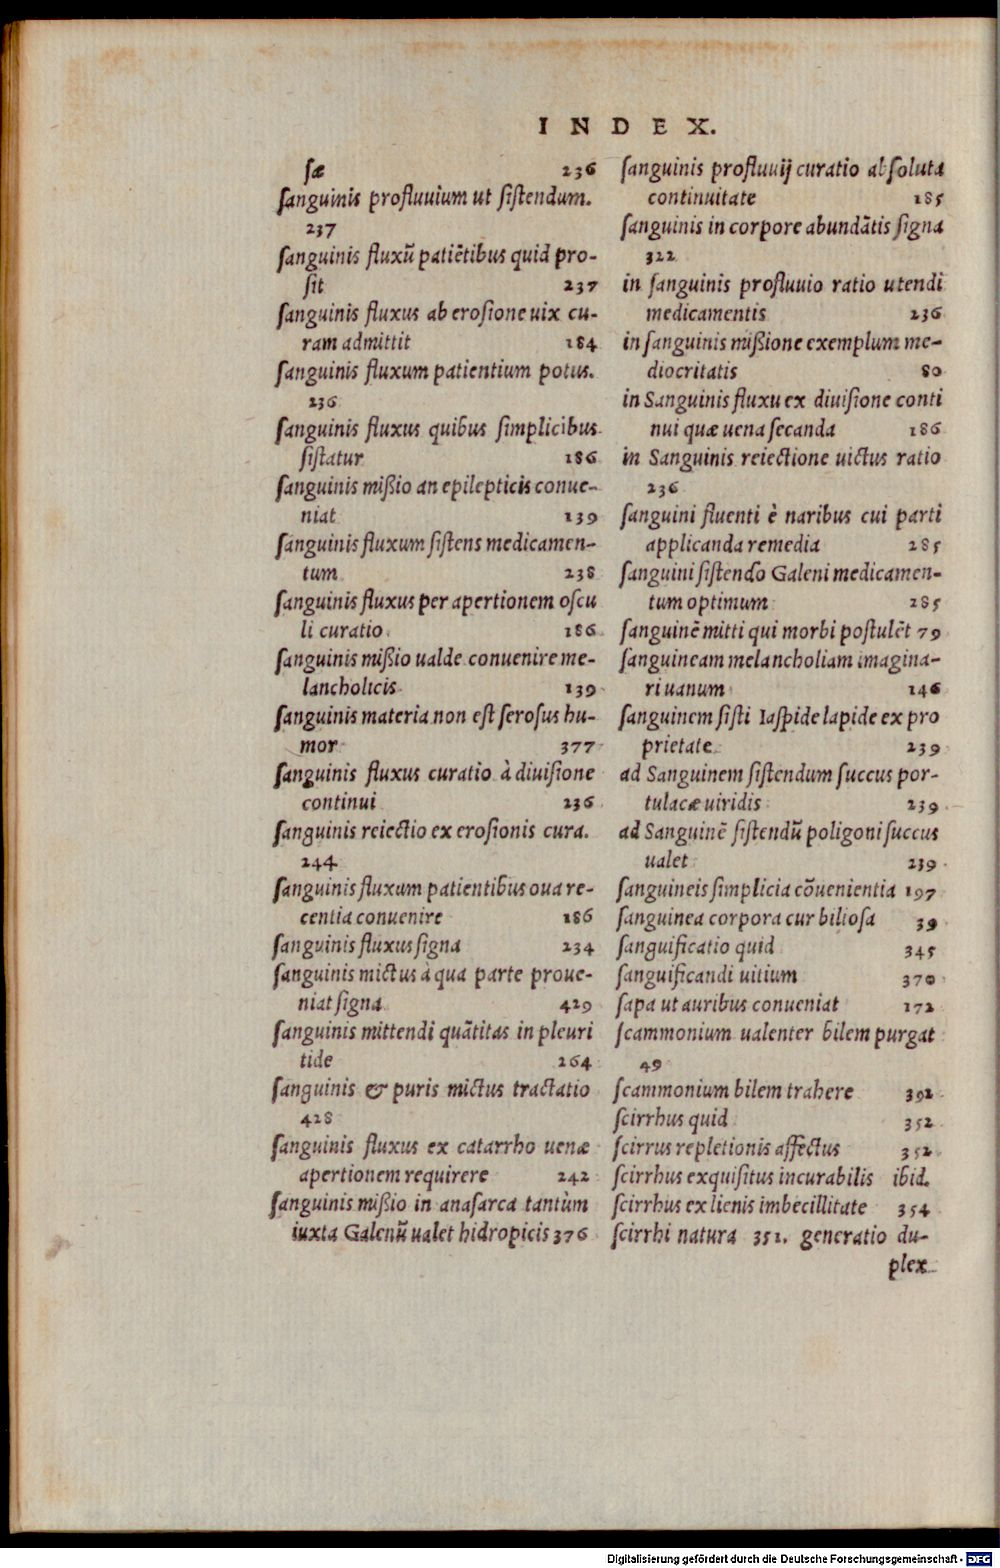 INDEX.
ſæ 236
ſanguinis profluuium ut ſiſtendum.
237
ſanguinis fluxũ patiẽtibus quid pro-
ſit 237
ſanguinis fluxus ab eroſione uix cu-
ram admittit 184
ſanguinis fluxum patientium potus.
236
ſanguinis fluxus quibus ſimplicibus
ſiſtatur 186
ſanguinis mißio an epilepticis conue-
niat 139
ſanguinis fluxum ſiſtens medicamen-
tum 238
ſanguinis fluxus per apertionem oſcu
li curatio 186
ſanguinis mißio ualde conuenire me-
lancholicis 139
ſanguinis materia non eſt ſeroſus hu-
mor 377
ſanguinis fluxus curatio à diuiſione
continui 236
ſanguinis reiectio ex eroſionis cura.
244
ſanguinis fluxum patientibus oua re-
centia conuenire 186
ſanguinis fluxus ſigna 234
ſanguinis mictus à qua parte proue-
niat ſigna 429
ſanguinis mittendi quãtitas in pleuri
tide 264
ſanguinis & puris mictus tractatio
428
ſanguinis fluxus ex catarrho uenæ
apertionem requirere 242
ſanguinis mißio in anaſarca tantùm
iuxta Galenũ ualet hidropicis 376
ſanguinis profluuij curatio abſoluta
continuitate 185
ſanguinis in corpore abundãtis ſigna
322
in ſanguinis profluuio ratio utendi
medicamentis 236
in ſanguinis mißione exemplum me-
diocritatis 80
in Sanguinis fluxu ex diuiſione conti
nui quæ uena ſecanda 186
in Sanguinis reiectione uictus ratio
236
ſanguini fluenti è naribus cui parti
applicanda remedia 285
ſanguini ſiſtendo Galeni medicamen-
tum optimum 285
ſanguinẽ mitti qui morbi poſtulẽt 79
ſanguineam melancholiam imagina-
ri uanum 146
ſanguinem ſiſti Iaſpide lapide ex pro
prietate 239
ad Sanguinem ſiſtendum ſuccus por-
tulacæ uiridis 239
ad Sanguinẽ ſiſtendũ poligoni ſuccus
ualet 239
ſanguineis ſimplicia cõuenientia 197
ſanguinea corpora cur bilioſa 39
ſanguificatio quid 345
ſanguificandi uitium 370
ſapa ut auribus conueniat 172
ſcammonium ualenter bilem purgat
49
ſcammonium bilem trahere 392
ſcirrhus quid 352
ſcirrus repletionis affectus 352
ſcirrhus exquiſitus incurabilis ibid.
ſcirrhus ex lienis imbecillitate 354
ſcirrhi natura 351. generatio du-
plex
Digitalisierung gefördert durch die Deutsche Forschungsgemeinschaft - DFG